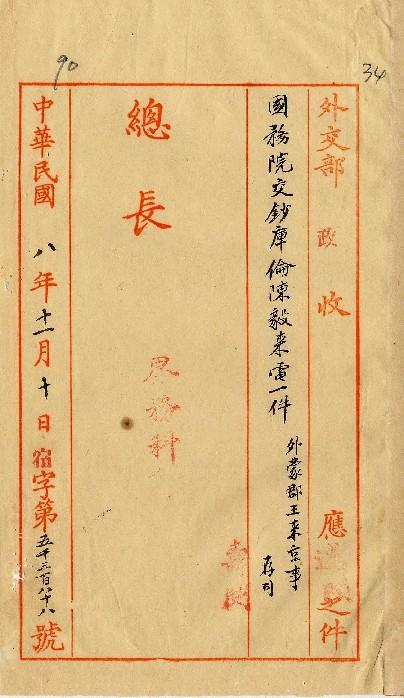 34
90
外交部 政 收 應 之件
國務院交鈔庫倫陳毅来電一件
外蒙郡王来京事
存司
總長
界務科
中華民國 八 年 十一 月 十 日 宿 字第 五千三百八十八 號